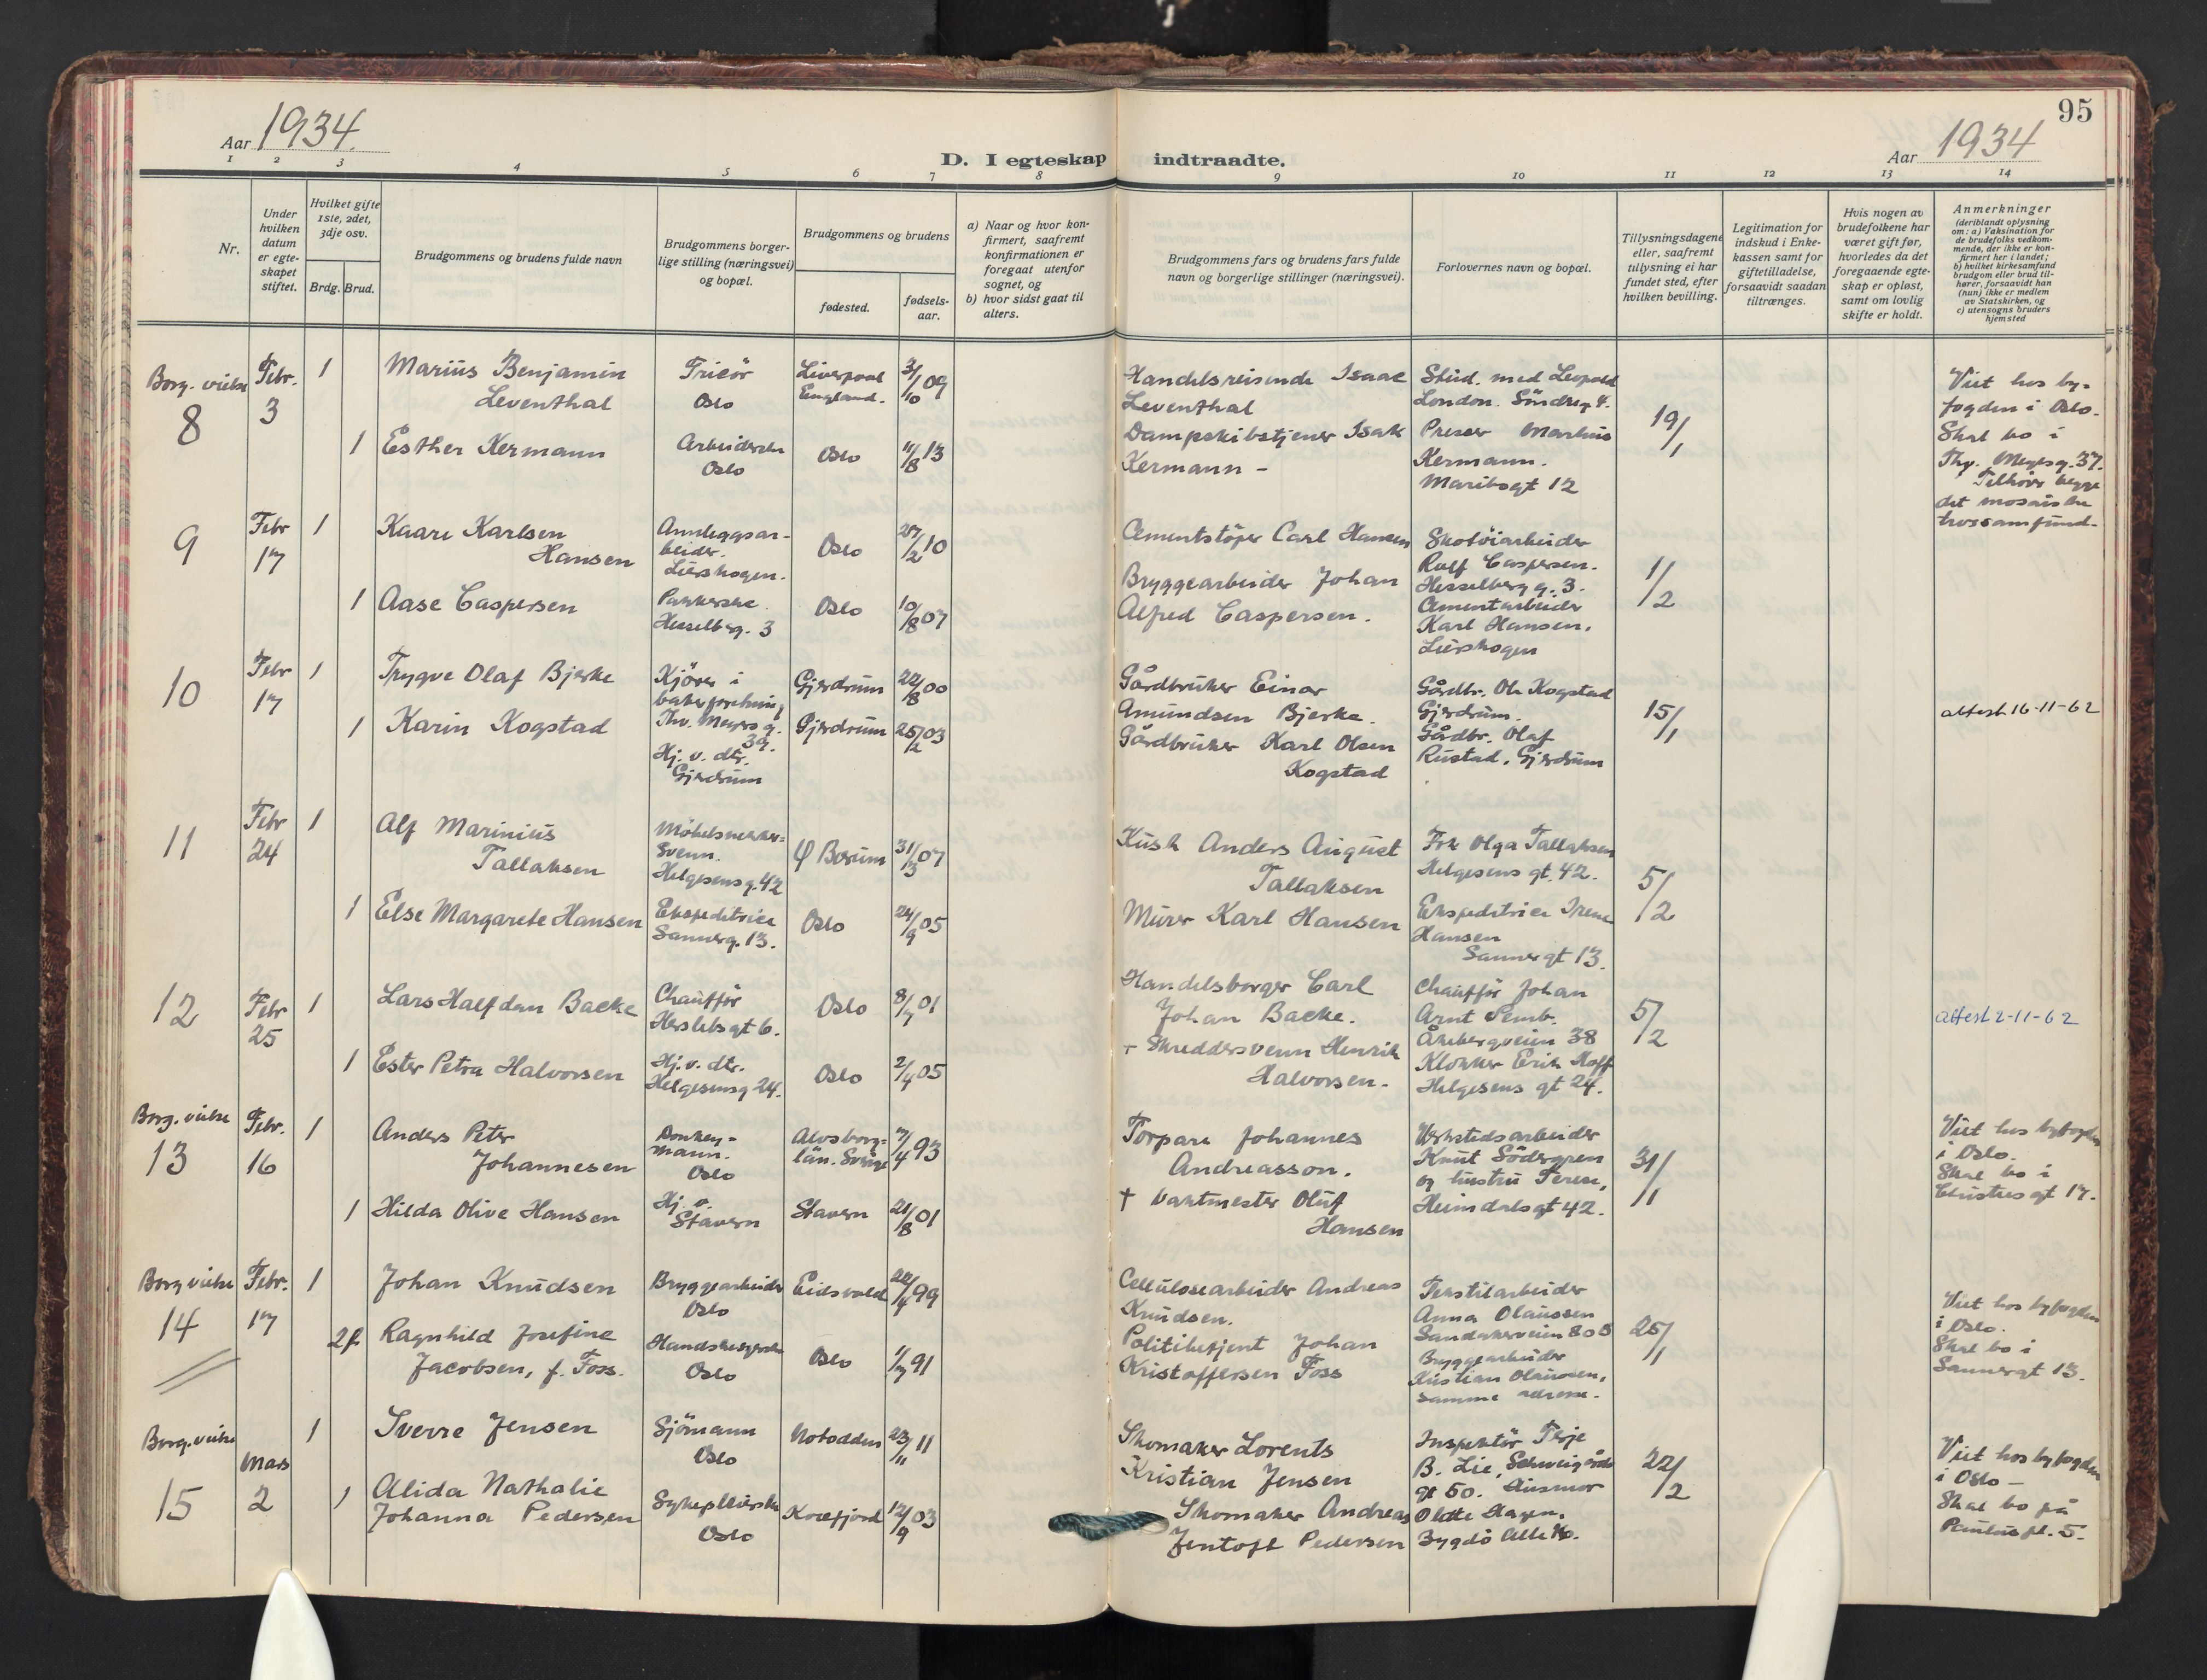 95
Aar 1934.
Aar 1934
D. I egteskap indtraadte.
1 2 3 4 5 6 7 8 9 10 11 12 13 14
Nr.
Under hvilken datum er egteskapet stiftet.
Hvilket gifte 1ste, 2det, 3dje osv.
Brdg. Brud.
Brudgommens og brudens fulde navn
Brudgommens borgerlige stilling (næringsvei) og bopæl.
Brudgommens og brudens
fødested.
fødselsaar.
a) Naar og hvor konfirmert, saafremt konfirmationen er foregaat utenfor sognet, og
b) hvor sidst gaat til alters.
Brudgommens fars og brudens fars fulde navn og borgerlige stillinger (næringsvei).
Forlovernes navn og bopæl.
Tillysningsdagene eller, saafremt tillysning ei har fundet sted, efter hvilken bevilling.
Legitimation for indskud i Enkekassen samt for giftetilladelse, forsaavidt saadan tiltrænges.
Hvis nogen av brudefolkene har været gift før, hvorledes da det foregaaende egteskap er opløst, samt om lovlig skifte er holdt.
Anmerkninger
(deriblandt oplysning om: a) Vaksination for de brudefolks vedkommende, der ikke er konfirmert her i landet;
b) hvilket kirkesamfund brudgom eller brud tilhører, forsaavidt han (hun) ikke er medlem av Statskirken, og
c) utensogns bruders hjemsted
Borg. vielse
8
Febr. 3
1
Marius Benjamin Leventhal
Fricør Oslo
Liverpool England.
3/10 09
Handelsreisende Isaac Leventhal
Stud. med Leopold London. Söndreg 4.
19/1
Viet hos byfogden i Oslo.
Skal bo i Thv. Meyersg. 37.
Tilhører begge det mosaiske trossamfund.
1
Esther Kermann
Arbeiderske Oslo
Oslo
11/8 13
Dampskibstjener Isak Kermann -
Presser Markus Kermann. Maribogt 12
9
Febr 17
1
Kaare Karlsen Hansen
Annleggsarbeider. Lierskogen.
Oslo
27/2 10
Cementstøper Carl Hansen
Skotöiarbeider Rolf Caspersen. Hesselberg g. 3.
1/2
1
Aase Caspersen
Pakkerske Hesselbg. 3
Oslo
10/8 07
Bryggearbeider Johan Alfred Caspersen.
Cementarbeider Karl Hansen, Lierskogen
10
Febr 17
1
Trygve Olaf Bjerke
Kjører i bakerforretning, Thv. Meyers g. 39.
Gjerdrum
22/8 00
Gårdbruker Einar Amundsen Bjerke.
Gårdbr. Ole Kogstad Gjerdrum.
15/1
attest 16-11-62
1
Karin Kogstad
Hj. v. dtr. Gjerdrum
Gjerdrum
25/2 03
Gårdbruker Karl Olsen Kogstad
Gårdbr. Olaf Rustad, Gjerdrum
11
Febr 24
1
Alf Marinius Tallaksen
Møbelsnekkersvenn. Helgesens g. 42
Ø Bærum
31/3 07
Kusk Anders August Tallaksen
Frk Olga Tallaksen Helgesens gt. 42.
5/2
1
Else Margarete Hansen
Ekspeditrice Sannerg. 13.
Oslo
24/9 05
Murer Karl Hansen
Ekspeditrice Irene Hansen Sannergt 13.
12
Febr 25
1
Lars Halfdan Backe
Chauffør Herslebs gt 6.
Oslo
8/7 01
Handelsborger Carl Johan Backe.
Chauffør Johan Arnt Semb. Åkebergveien 38
5/2
attest 2-11-62
1
Ester Petra Halvorsen
Hj. v. dtr. Helgesensg 24.
Oslo
2/4 05
+ Skreddersvenn Henrik Halvorsen.
Klokker Erik Hoff Helgesens gt 24.
Borg. vielse
13
Febr. 16
1
Anders Peter Johannesen
Donkeymann. Oslo
Alvsborglän. Sverige
7/4 93
Torpare Johannes Andreasson.
Verkstedsarbeider Knut Södergren og hustru Terese, Heimdalsgt 42.
31/1
Viet hos byfogden i Oslo.
Skal bo i Christies gt 17.
1
Hilda Olive Hansen
Hj. v. Stavern
Stavern
21/8 01
† Vaktmester Oluf Hansen
Borg vielse
14
Febr. 17
1
Johan Knudsen
Bryggearbeider Oslo
Eidsvold
22/4 99
Cellulosearbeider Andreas Knudsen.
Tekstilarbeider Anna Olaussen Sandakerveien 80 B
25/1
Viet hos byfogden i Oslo.
Skal bo i Sannergt 13.
2 f.
Ragnhild Josefine Jacobsen, f. Foss.
Oslo
Oslo
1/7 91
Politibetjent Johan Kristoffersen Foss
Bryggearbeider Kristian Olaussen, samme adresse.
Borg. vielse
15
Mars 2
1
Sverre Jensen
Sjømann Oslo
Notodden
23/11 11
Skomaker Lorents Kristian Jensen
Inspektør Terje B. Lie, Schweigårds gt 50.
22/2
Viet hos byfogden i Oslo -
Skal bo på Pauluspl. 5.
1
Alida Nathalie Johanna Pedersen
Sykepleierske Oslo
Korsfjord
12/9 03
Skomaker Andreas Jentoft Pedersen
Hagen, Bygdø Alle